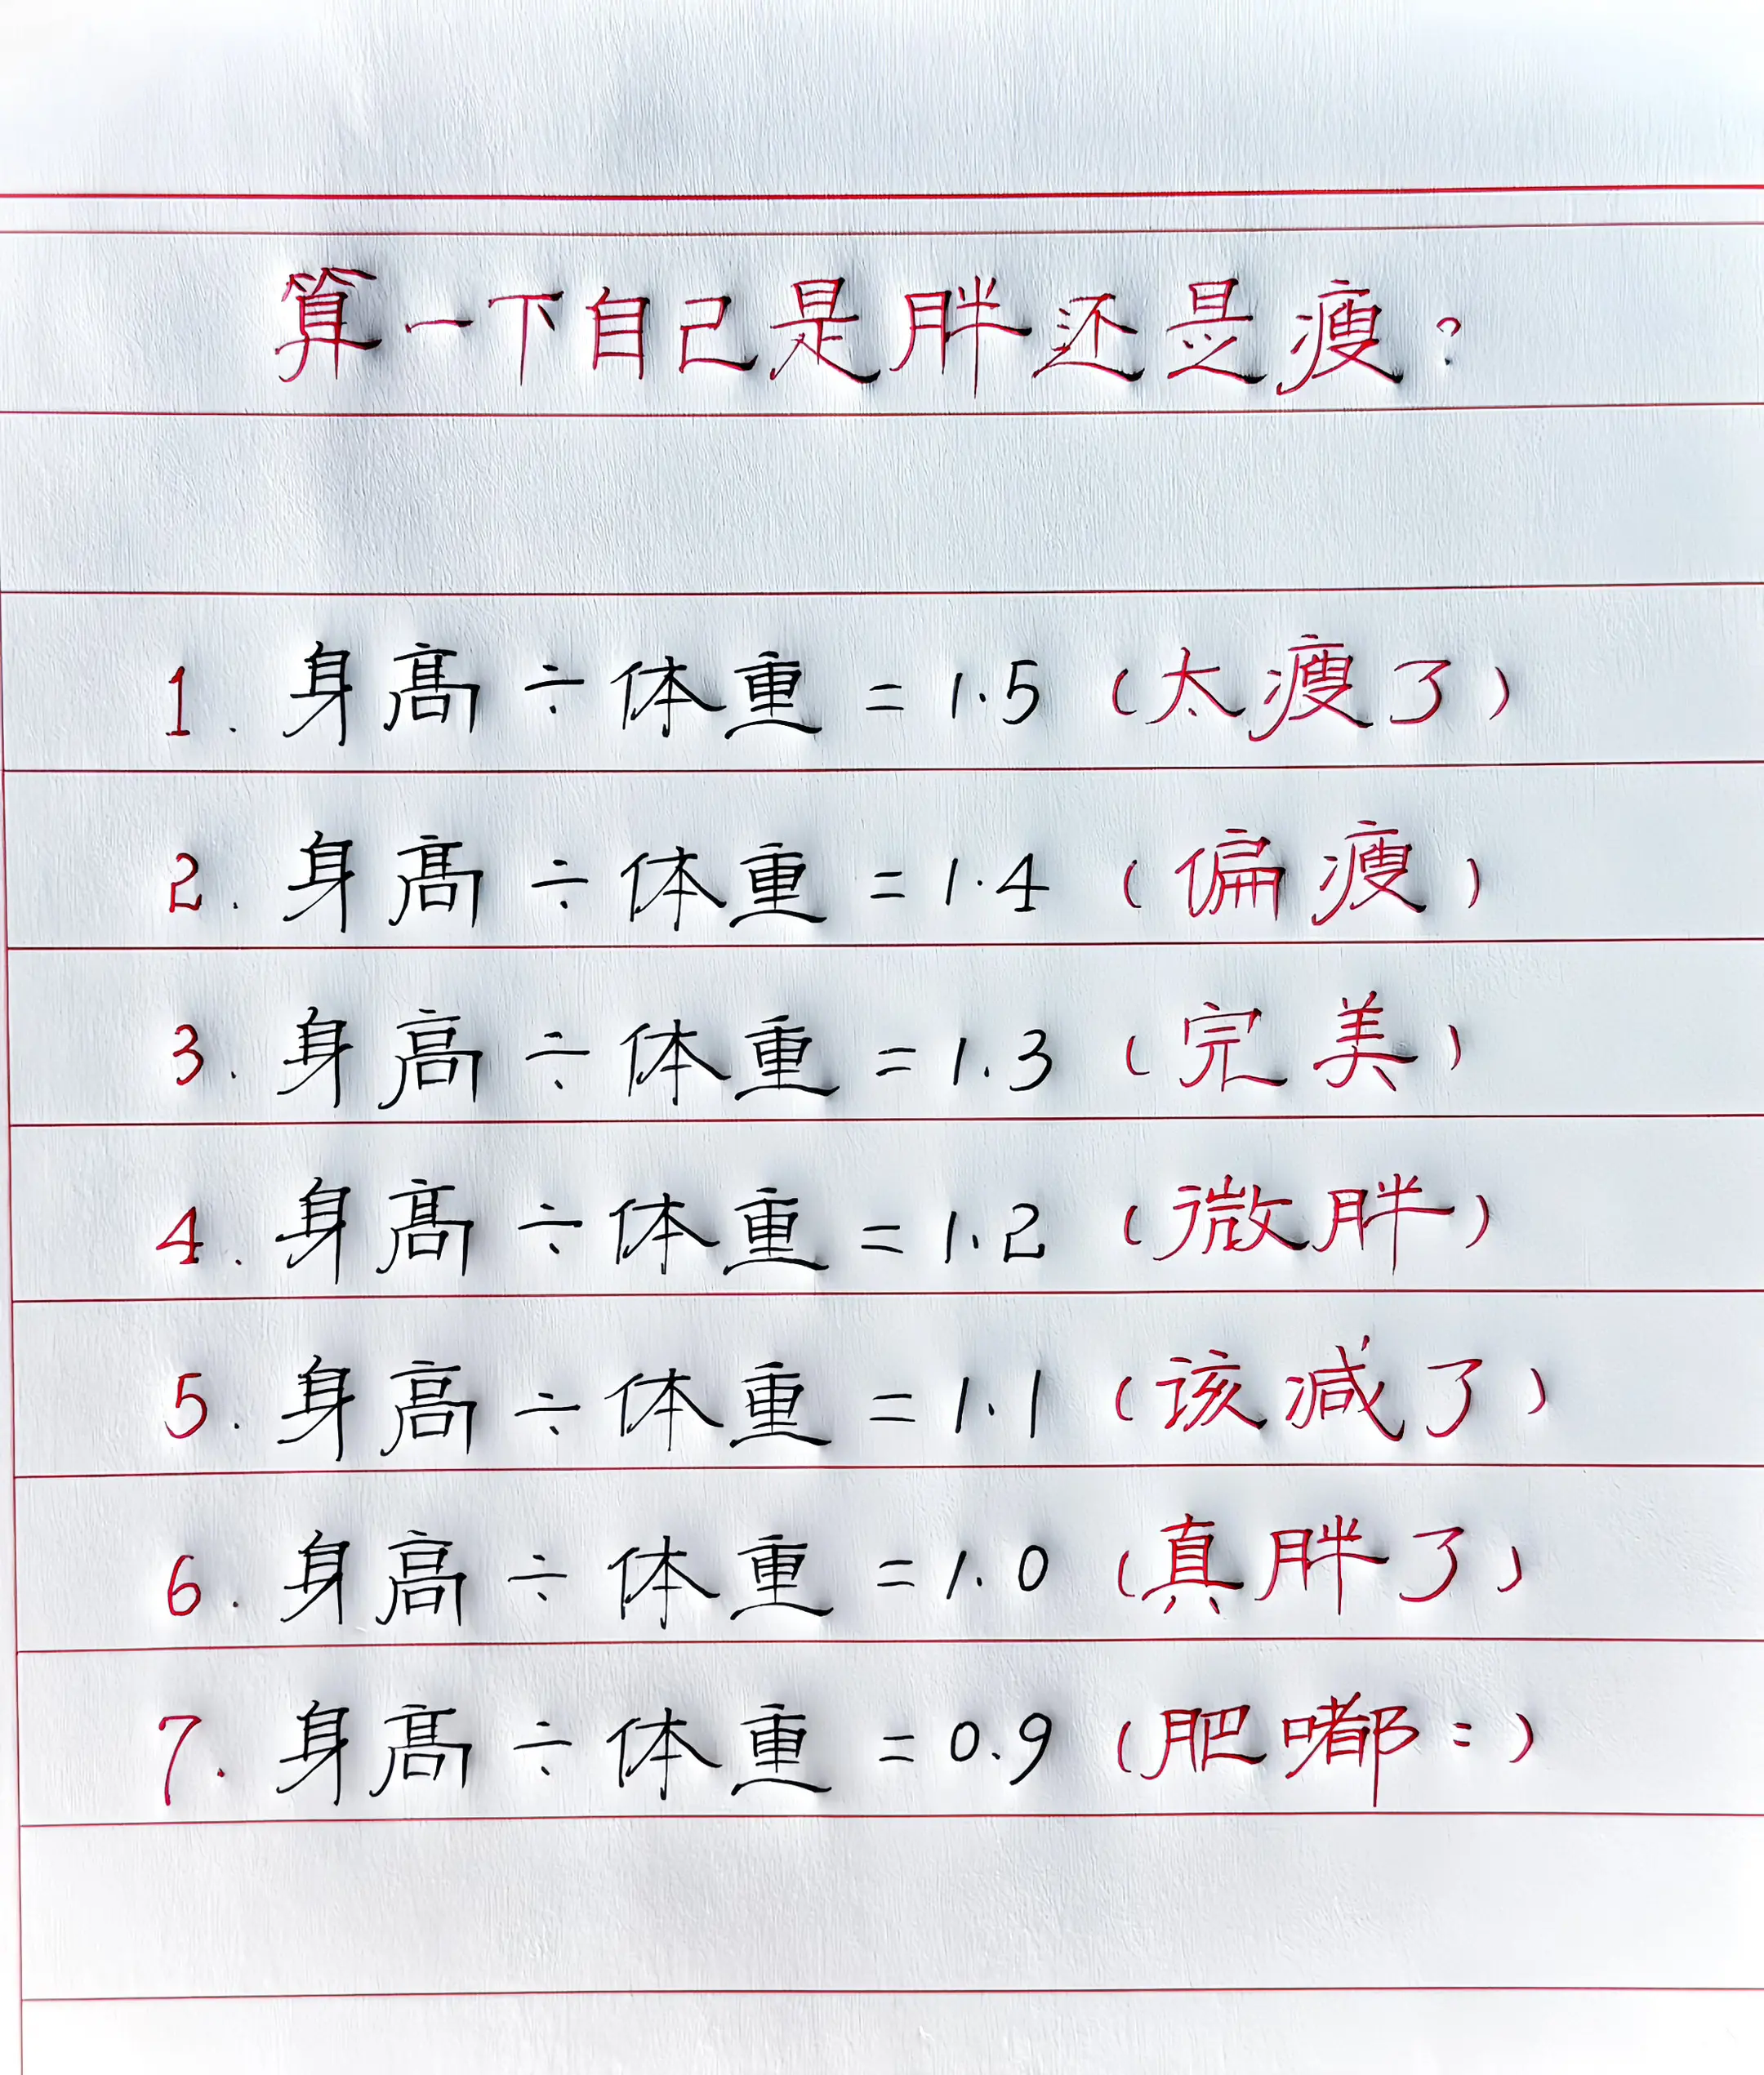 算一下自己是胖还是瘦?
1. 身高÷体重=1.5(太瘦了)
2. 身高÷体重=1.4(偏瘦)
3. 身高÷体重=1.3(完美)
4. 身高÷体重=1.2(微胖)
5. 身高÷体重=1.1(该减了)
6. 身高÷体重=1.0(真胖了)
7. 身高÷体重=0.9(肥嘟:)